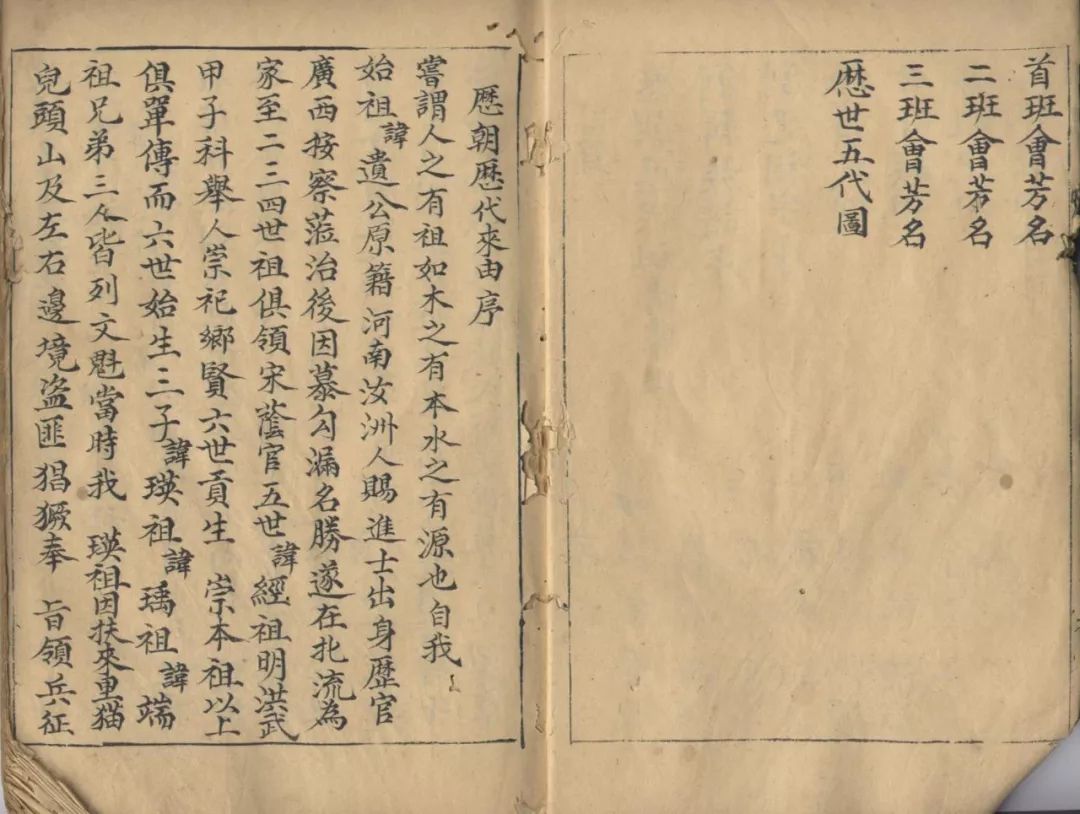 首班會芳名
二班會芳名
三班會芳名
歷世五代圖
歷朝歷代來由序
嘗謂人之有祖如木之有本水之有源也自我
始祖諱遺公原籍河南汝洲人賜進士出身歷官
廣西按察蒞治後因慕勾漏名勝遂在北流為
家至二三四世祖俱領宋蔭官五世諱經祖明洪武
甲子科舉人崇祀鄉賢六世貢生 崇本祖以上
俱單傳而六世始生三子諱瑛祖諱瑀祖諱端
祖兄弟三人皆列文魁當時我 瑛祖因扶來里猫
兒頭山及左右邊境盜匪猖獗奉 旨領兵征